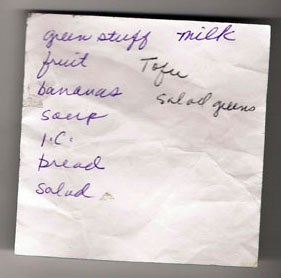 green stuff
milk
fruit
Tofu
bananas
salad greens
soup
I.C.
bread
salad